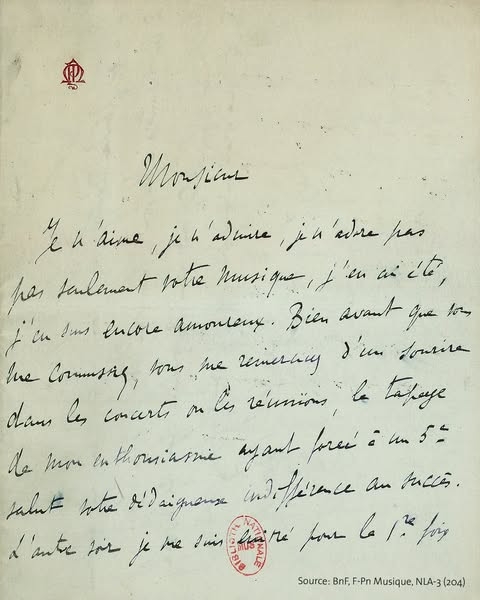 Monsieur
Je n'aime, je n'admire, je n'adore pas
pas seulement votre musique, j'en ai été,
j'en suis encore amoureux. Bien avant que vous
me connussiez, vous me remerciiez d'un sourire
dans les concerts ou les réunions, le tapage
de mon enthousiasme ayant forcé à un 5e
salut votre dédaigneuse indifférence au succès.
L'autre soir je me suis enivré pour la 1re fois
NATIONALE
MUS
Source: BnF, F-Pn Musique, NLA-3 (204)